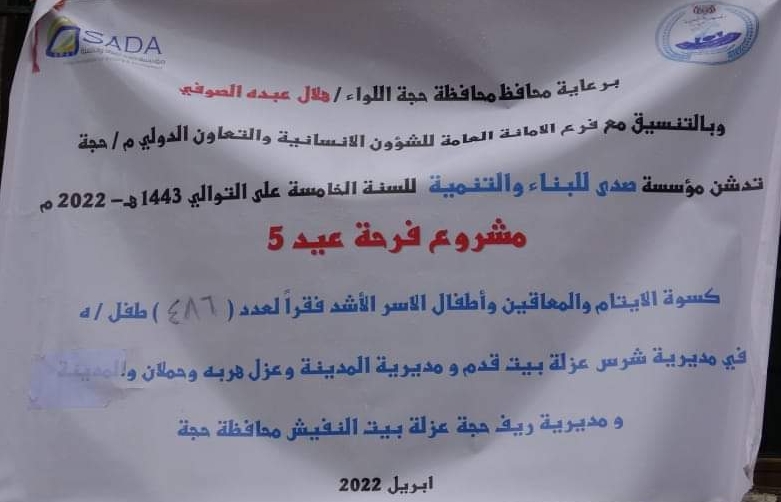 SADA
برعاية محافظ محافظة حجة اللواء / هلال عبده الصوفي
وبالتنسيق مع فرع الامانة العامة للشؤون الانسانية والتعاون الدولي م / حجة
تدشن مؤسسة صدى للبناء والتنمية للسنة الخامسة على التوالي 1443 هـ – 2022 م
مشروع فرحة عيد 5
كسوة الايتام والمعاقين وأطفال الاسر الأشد فقراً لعدد ( ٤٨٦ ) طفل / ه
في مديرية شرس عزلة بيت قدم و مديرية المدينة وعزل هربه وحملان والمدينة
و مديرية ريف حجة عزلة بيت النفيش محافظة حجة
ابريل 2022